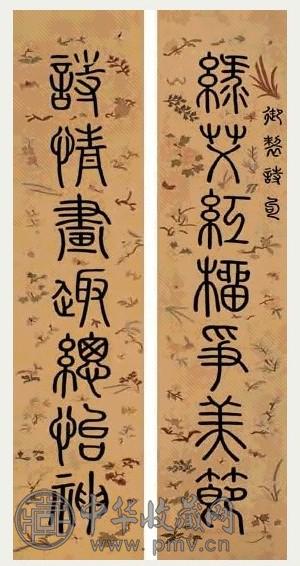 御製詩
綠艾紅榴爭美節
詩情畫趣總怡神
中华收藏网
www.pmv.cn